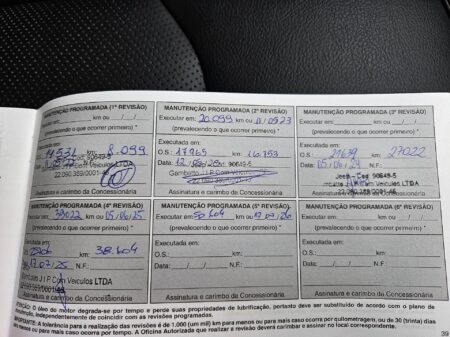 MANUTENÇÃO PROGRAMADA (1ª REVISÃO)
km ou __/__/__
(prevalecendo o que ocorrer primeiro)
Executada em:
O.S.: 14531 km: 8.099
Data: N.F.:
22.090.359/0001-46
Assinatura e carimbo da Concessionária
MANUTENÇÃO PROGRAMADA (2ª REVISÃO)
Executar em: 20.099 km ou 11/05/23
(prevalecendo o que ocorrer primeiro)
Executada em:
O.S.: 17965 km: 16.753
Data: N.F.:
Assinatura e carimbo da Concessionária
MANUTENÇÃO PROGRAMADA (3ª REVISÃO)
Executar em: km ou __/__/__
(prevalecendo o que ocorrer primeiro)
Executada em:
O.S.: 21639 km: 27022
Data: 05/06/24 N.F.:
Jeep - Cod. 90649-5
Com Veiculos LTDA
Assinatura e carimbo da Concessionária
MANUTENÇÃO PROGRAMADA (4ª REVISÃO)
39022 km ou 05/06/25
(prevalecendo o que ocorrer primeiro)
Executada em:
km: 38.604
17/07/25 N.F.:
J I P Com Veiculos LTDA
Assinatura e carimbo da Concessionária
MANUTENÇÃO PROGRAMADA (5ª REVISÃO)
Executar em: 50.604 km ou
(prevalecendo o que ocorrer primeiro)
Executada em:
O.S.: km:
Data: __/__/__ N.F.:
Assinatura e carimbo da Concessionária
MANUTENÇÃO PROGRAMADA (6ª REVISÃO)
Executar em: km ou __/__/__
(prevalecendo o que ocorrer primeiro)
Executada em:
O.S.: km:
Data: __/__/__ N.F.:
Assinatura e carimbo da Concessionária
ATENÇÃO: O óleo do motor degrada-se por tempo e perde suas propriedades de lubrificação, portanto deve ser substituído de acordo com o plano de
manutenção, independentemente de coincidir com as revisões programadas.
IMPORTANTE: A tolerância para a realização das revisões é de 1.000 (um mil) km para menos ou para mais caso ocorra por quilometragem, ou de 30 (trinta) dias
para menos ou para mais caso ocorra por tempo. A Oficina Autorizada que realizar a revisão deverá carimbar e assinar no local correspondente.
39